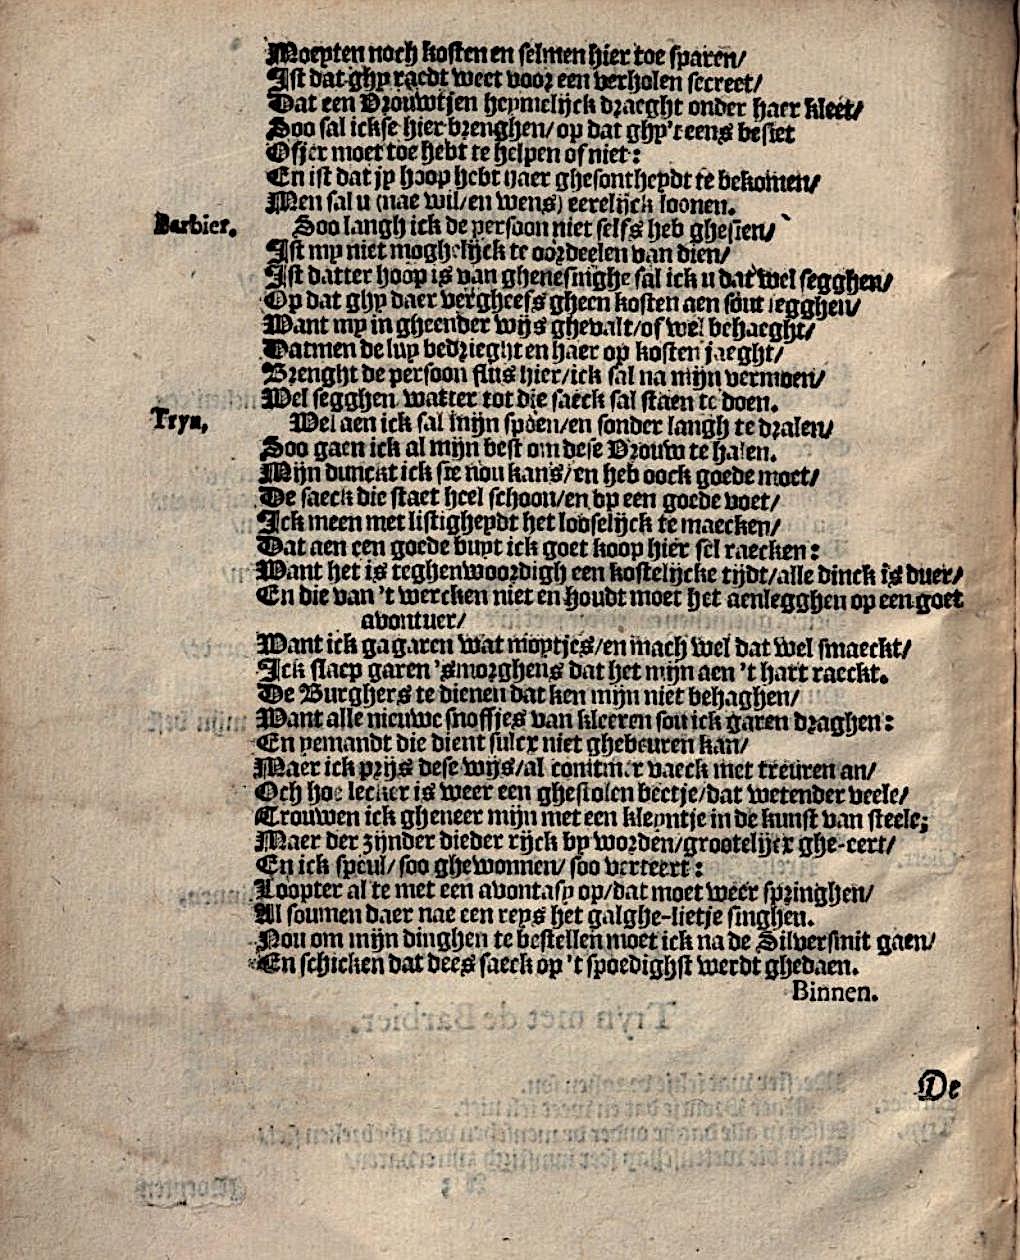 Moeyten noch kosten en selmen hier toe sparen/
Ist dat ghy raedt weet voor een verholen secreet/
Dat een Vrouwtjen heymelijck draeght onder haer kleet/
Soo sal ickse hier brenghen/ op dat ghy't eens besiet
Ofjer moet toe hebt te helpen of niet:
En ist dat jy hoop hebt haer ghesontheydt te bekomen/
Men sal u (nae wil/ en wens) eerelijck loonen.
Barbier. Soo langh ick de persoon niet selfs heb ghesien/
Ist my niet moghelijck te oordeelen van dien/
Ist datter hoop is van ghenesinghe sal ick u dat wel segghen/
Op dat ghy daer vergheefs gheen kosten aen sout legghen/
Want my in gheender wijs ghevalt/of wel behaeght/
Datmen de luy bedrieght en haer op kosten jaeght/
Brenght de persoon flus hier/ick sal na mijn vermoen/
Wel segghen watter tot die saeck sal staen te doen.
Tryn, Wel aen ick sal mijn spoen/en sonder langh te dralen/
Soo gaen ick al mijn best om dese Vrouw te halen.
Mijn dunckt ick sie nou kans/en heb oock goede moet/
De saeck die staet heel schoon/en op een goede voet/
Ick meen met listigheydt het looselijck te maecken/
Dat aen een goede buyt ick goet koop hier sel raecken:
Want het is teghenwoordigh een kostelijcke tijdt/alle dinck is duer/
En die van 't wercken niet en houdt moet het aenlegghen op een goet
avontuer/
Want ick gagaren wat moytjes/en mach wel dat wel smaeckt/
Ick slaep garen 'smorghens dat het mijn aen 't hart raeckt.
De Burghers te dienen dat ken mijn niet behaghen/
Want alle nieuwe snoffjes van kleeren sou ick garen draghen:
En yemandt die dient sulcx niet ghebeuren kan/
Maer ick prijs dese wijs/al comtmer vaeck met treuren an/
Och hoe lecker is weer een ghestolen beetje/dat wetender veele/
Trouwen ick gheneer mijn met een kleyntje in de kunst van steele;
Maer der zijnder dieder rijck by worden/grootelijcx ghe-eert/
En ick speul/ soo ghewonnen/ soo verteert:
Loopter al te met een avontasy op/dat moet weer springhen/
Al soumen daer nae een reys het galghe-lietje singhen.
Nou om mijn dinghen te bestellen moet ick na de Silversmit gaen/
En schicken dat dees saeck op 't spoedighst werdt ghedaen.
Binnen.
De